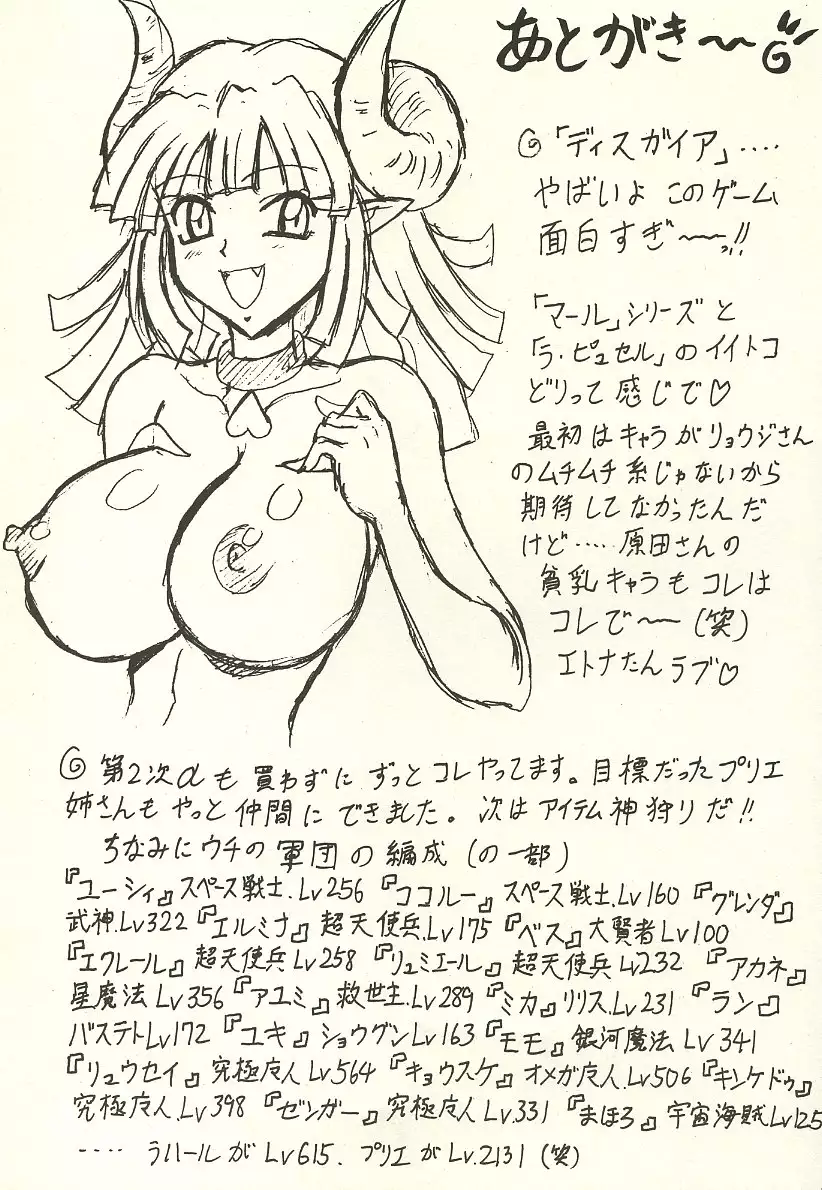 あとがき〜
「ディスガイア」‥‥
やばいよ このゲーム
面白すぎ〜〜っ!!
「マール」シリーズと
「ラ・ピュセル」のイイトコ
どりって感じで♡
最初はキャラがリョウジさん
のムチムチ系じゃないから
期待してなかったんだ
けど‥‥ 原田さんの
貧乳キャラもコレは
コレで〜(笑)
エトナたんラブ♡
第2次αも買わずにずっとコレやってます。目標だったプリエ
姉さんもやっと仲間にできました。次はアイテム神狩りだ!!
ちなみにウチの軍団の編成(の一部)
『ユーシィ』スペース戦士.Lv256『ココルー』スペース戦士.Lv160『グレンダ』
武神.Lv322『エルミナ』超天使兵.Lv175『ベス』大賢者Lv100
『エクレール』超天使兵Lv258『リュミエール』超天使兵Lv232『アカネ』
星魔法Lv356『アユミ』救世主.Lv289『ミカ』リリス.Lv231『ラン』
バステトLv172『ユキ』ショウグンLv163『モモ』銀河魔法Lv341
『リュウセイ』究極魔人Lv564『キョウスケ』オメガ魔人.Lv506『キンケドゥ』
究極魔人.Lv398『ゼンガー』究極魔人Lv331『まほろ』宇宙海賊Lv125
‥‥ラハールがLv615.プリエがLv.2131(笑)